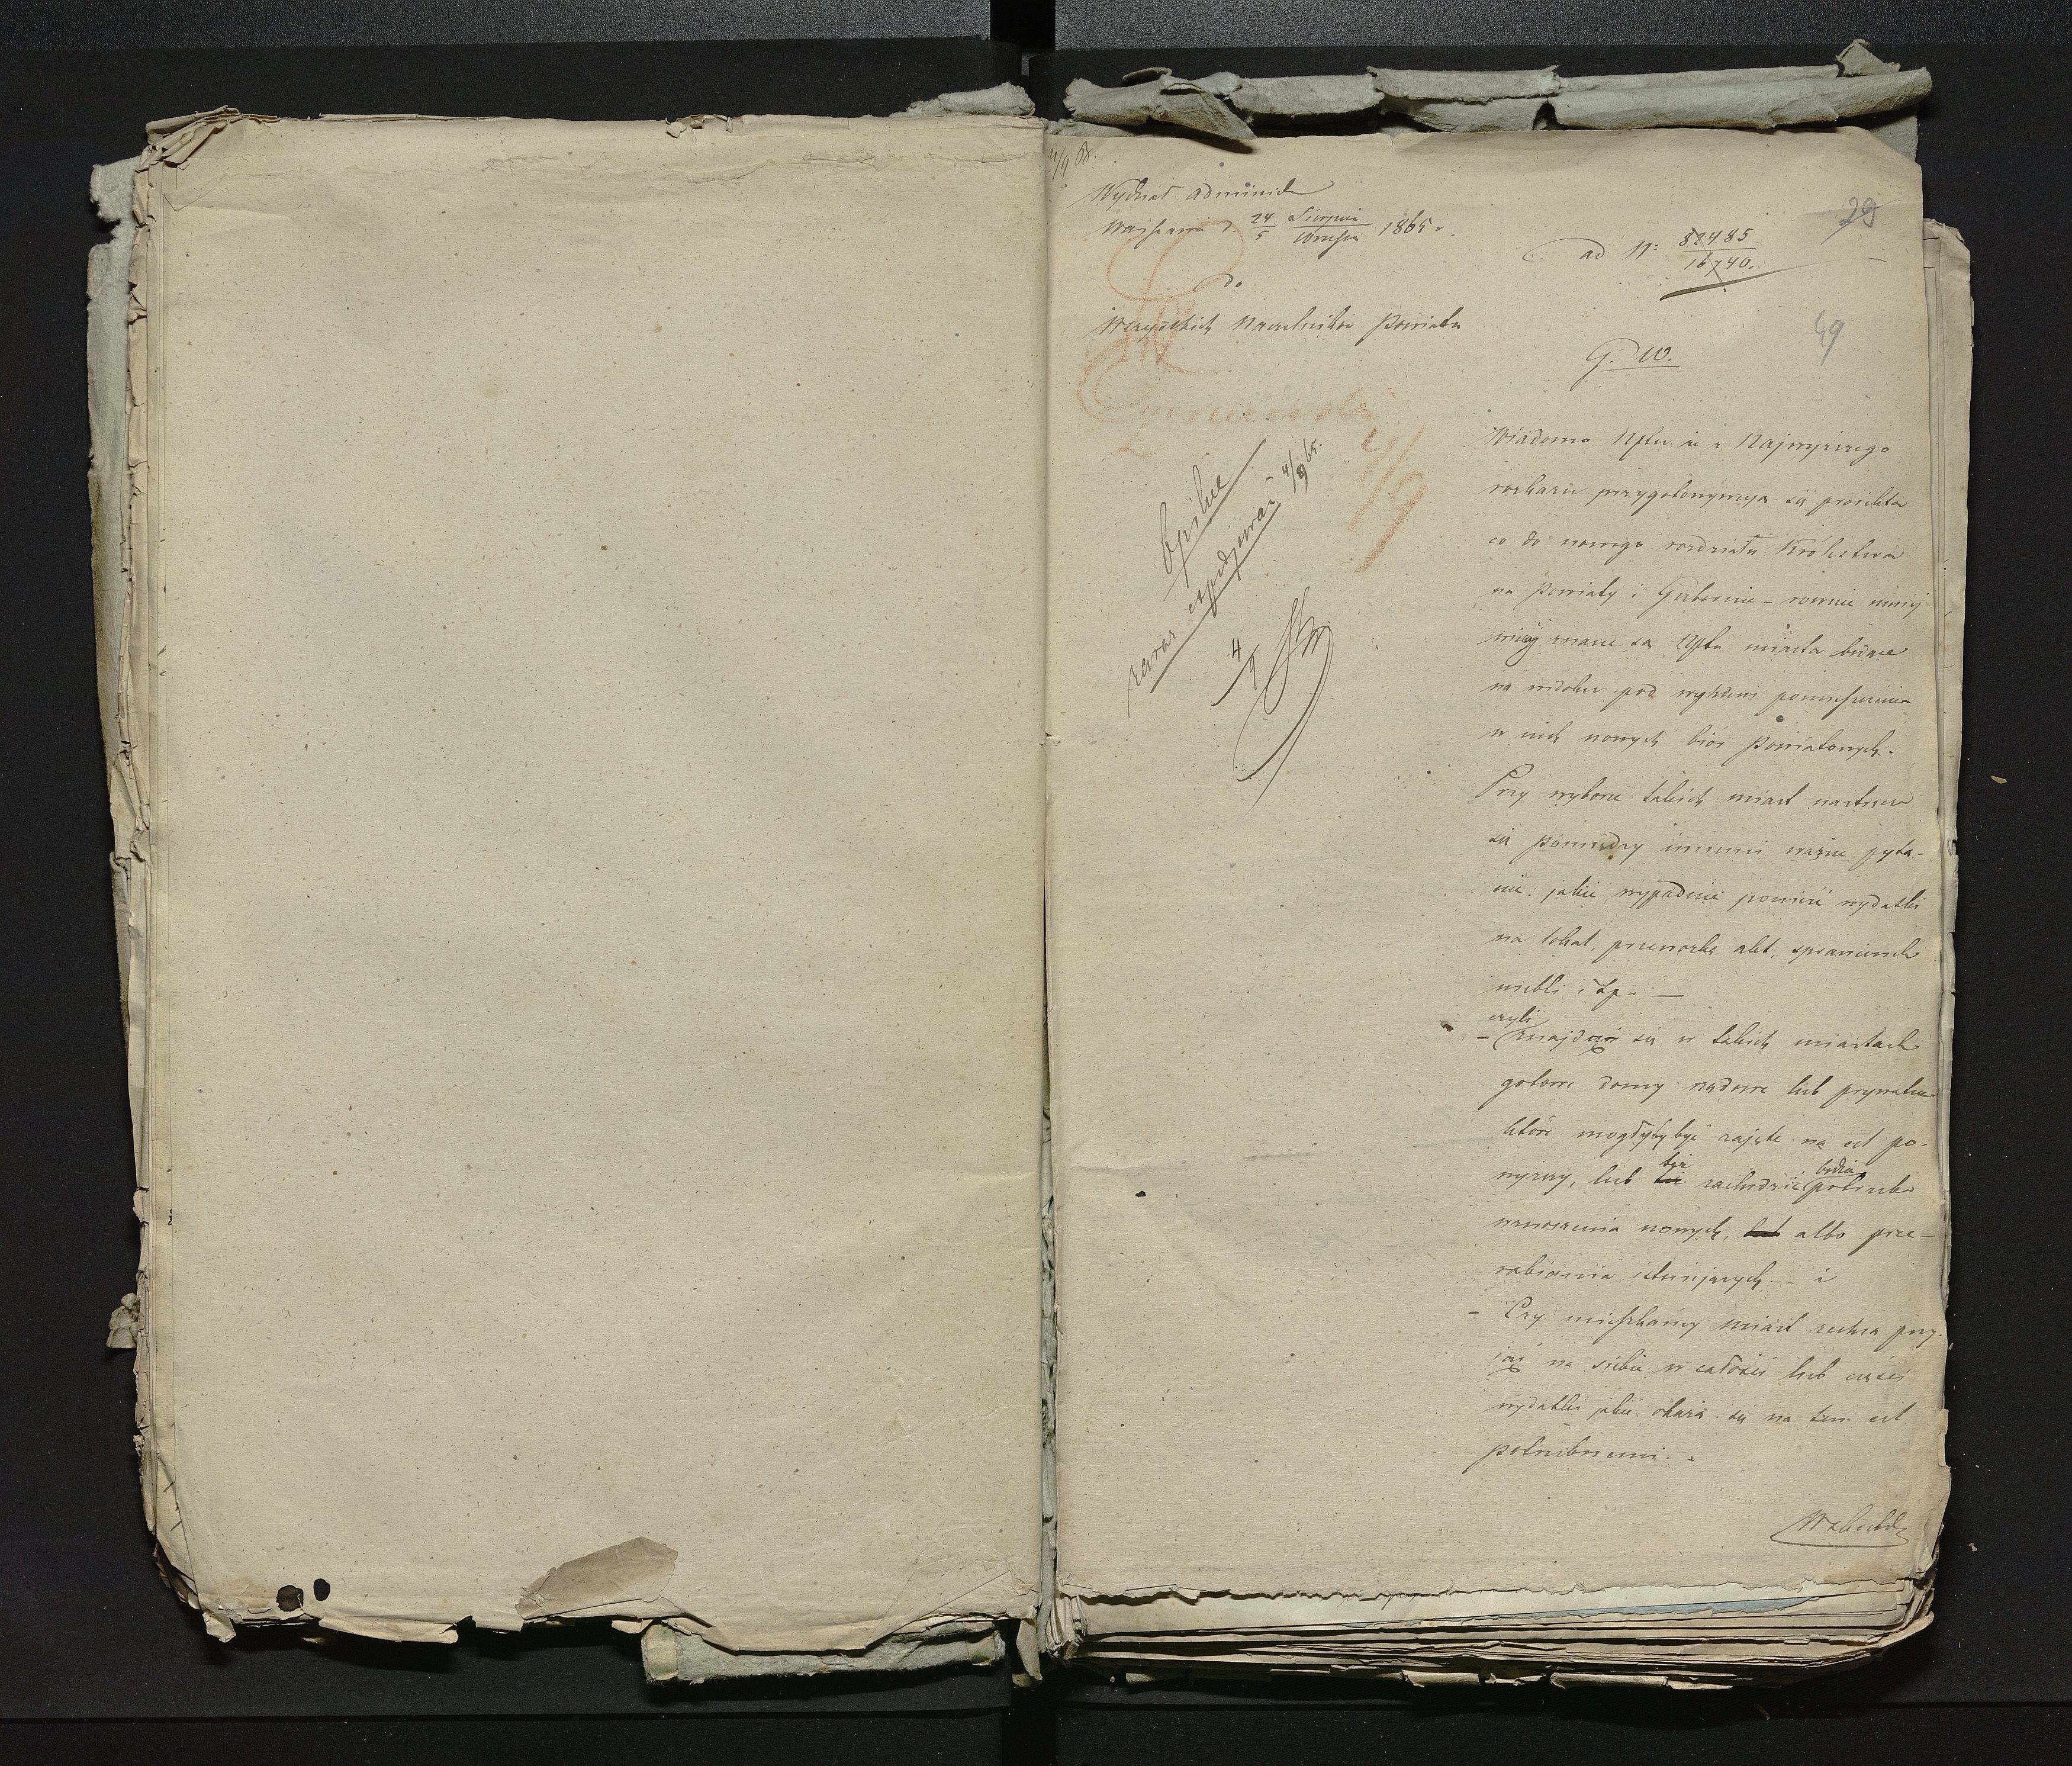 4/9 B.
Wydział Administr
Warszawa d. 24/5 Sierpnia/Września 1865 r.
29
ad N: 82485/16740.
do
Wszystkich Naczelników Powiatu
49
G. W.
4/9
Pilne
zaraz expedjować 4/9 65.
4/9
Wiadomo Nplwi że z Najwyższego
rozkazu przygotowywują się projekta
co do nowego rozdziału Królestwa
na Powiaty i Gubernie – równie mniej
więcej znane są Nplwi miasta będące
na widoku pod względem pomieszczenia
w nich nowych biór Powiatowych.
Przy wyborze takich miast nastręcza
się pomiędzy innemi ważne pyta-
nie: jakie wypadnie ponieść wydatki
na lokal, przewózkę akt, sprawienie
mebli i t.p. —
czyli
– znajdują się w takich miastach
gotowe domy rządowe lub prywatne
które mogłyby być zajęte na cel po-
wyższy, lub też zachodzić będzie potrzeba
wznoszenia nowych, lub albo prze-
rabiania istniejących – i
– Czy mieszkańcy miast zechcą przy-
jąć na siebie w całości lub części
wydatki jakie okażą się na ten cel
potrzebnemi. –